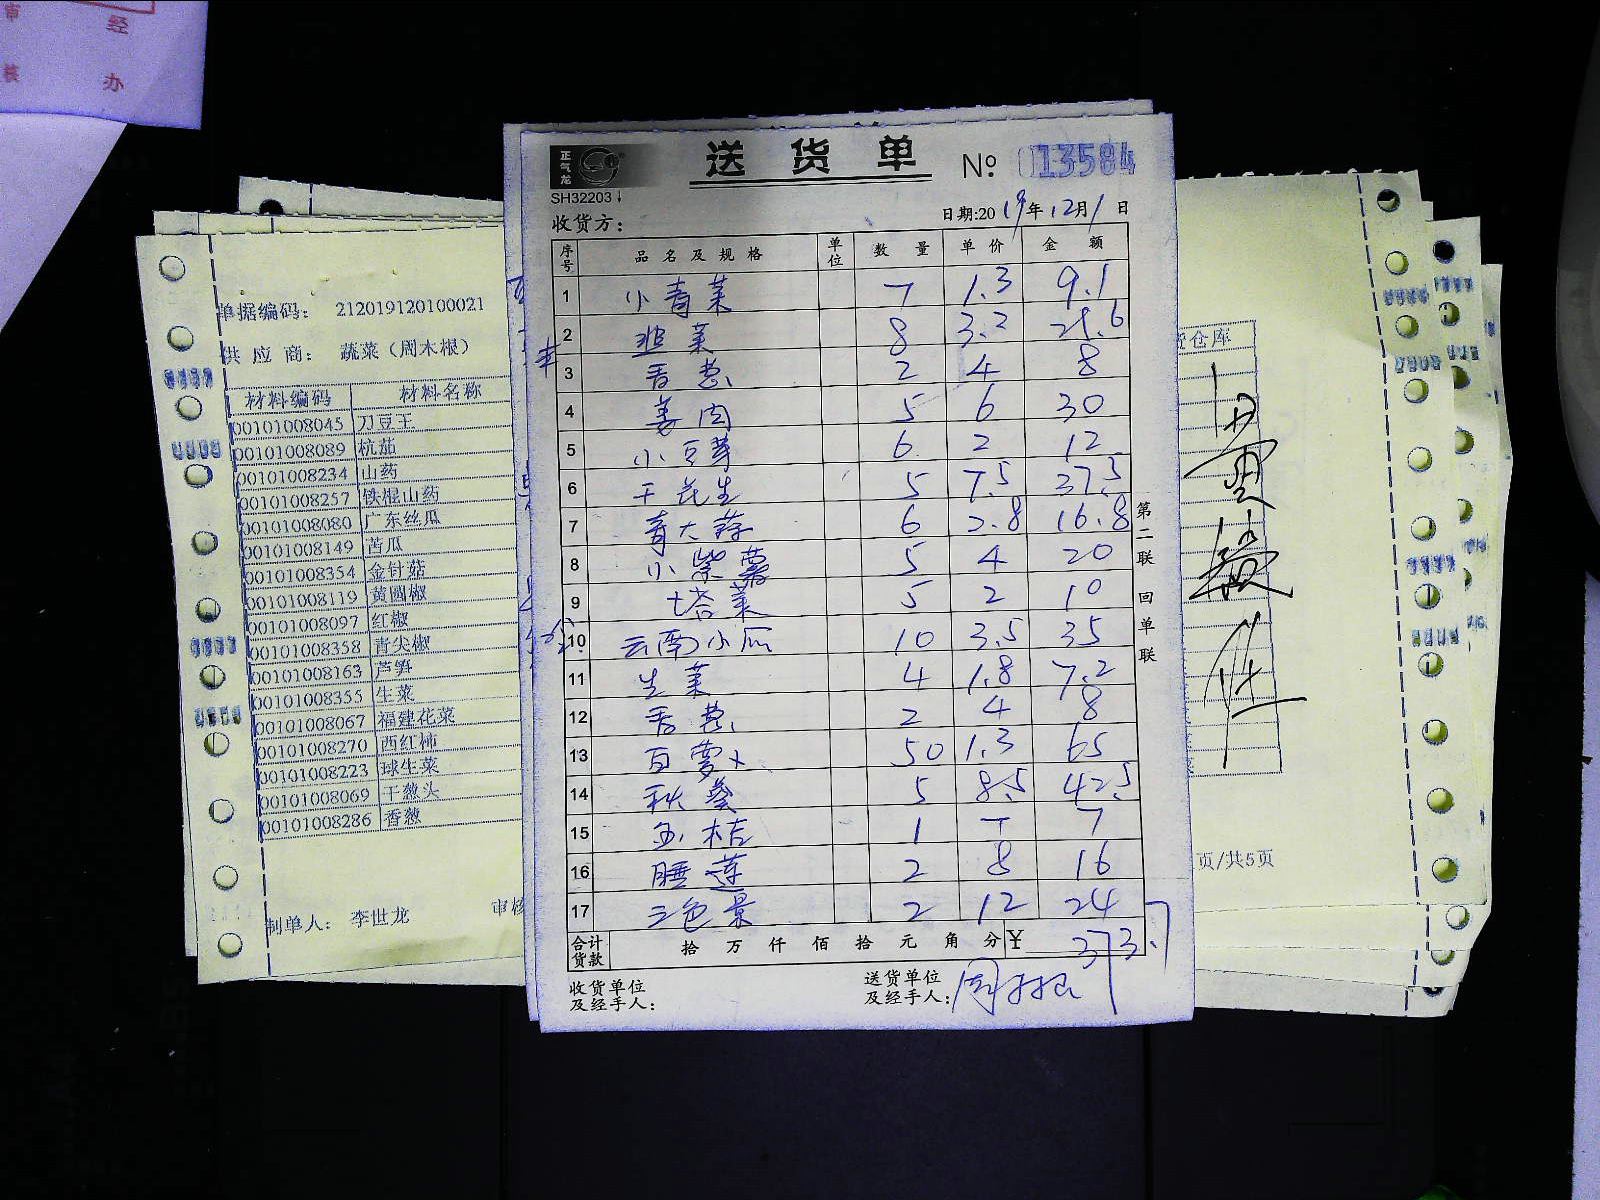 审 经
核 办
正气龙
SH32203
送货单
No 013584
收货方：
日期:2019年12月1日
序号 品名及规格 单位 数量 单价 金额
1 小青菜 7 1.3 9.1
2 韭菜 8 3.2 25.6
3 香葱 2 4 8
4 姜肉 5 6 30
5 小豆芽 6 2 12
6 干花生 5 7.5 37.5
7 青大蒜 6 2.8 16.8
8 小紫薯 5 4 20
9 塔菜 5 2 10
10 云南小瓜 10 3.5 35
11 生菜 4 1.8 7.2
12 香葱 2 4 8
13 白萝卜 50 1.3 65
14 秋葵 5 8.5 42.5
15 金桔 1 7 7
16 睡莲 2 8 16
17 三色堇 2 12 24
合计货款 拾 万 仟 佰 拾 元 角 分 ¥ 373.7
收货单位及经手人：
送货单位及经手人：周
第二联 回单联
单据编码： 212019120100021
供应商： 蔬菜（周木根）
材料编码 材料名称
00101008045 刀豆王
00101008089 杭茄
00101008234 山药
00101008257 铁棍山药
00101008080 广东丝瓜
00101008149 苦瓜
00101008354 金针菇
00101008119 黄圆椒
00101008097 红椒
00101008358 青尖椒
00101008163 芦笋
00101008355 生菜
00101008067 福建花菜
00101008270 西红柿
00101008223 球生菜
00101008069 干葱头
00101008286 香葱
制单人： 李世龙
审核
仓库
页/共5页